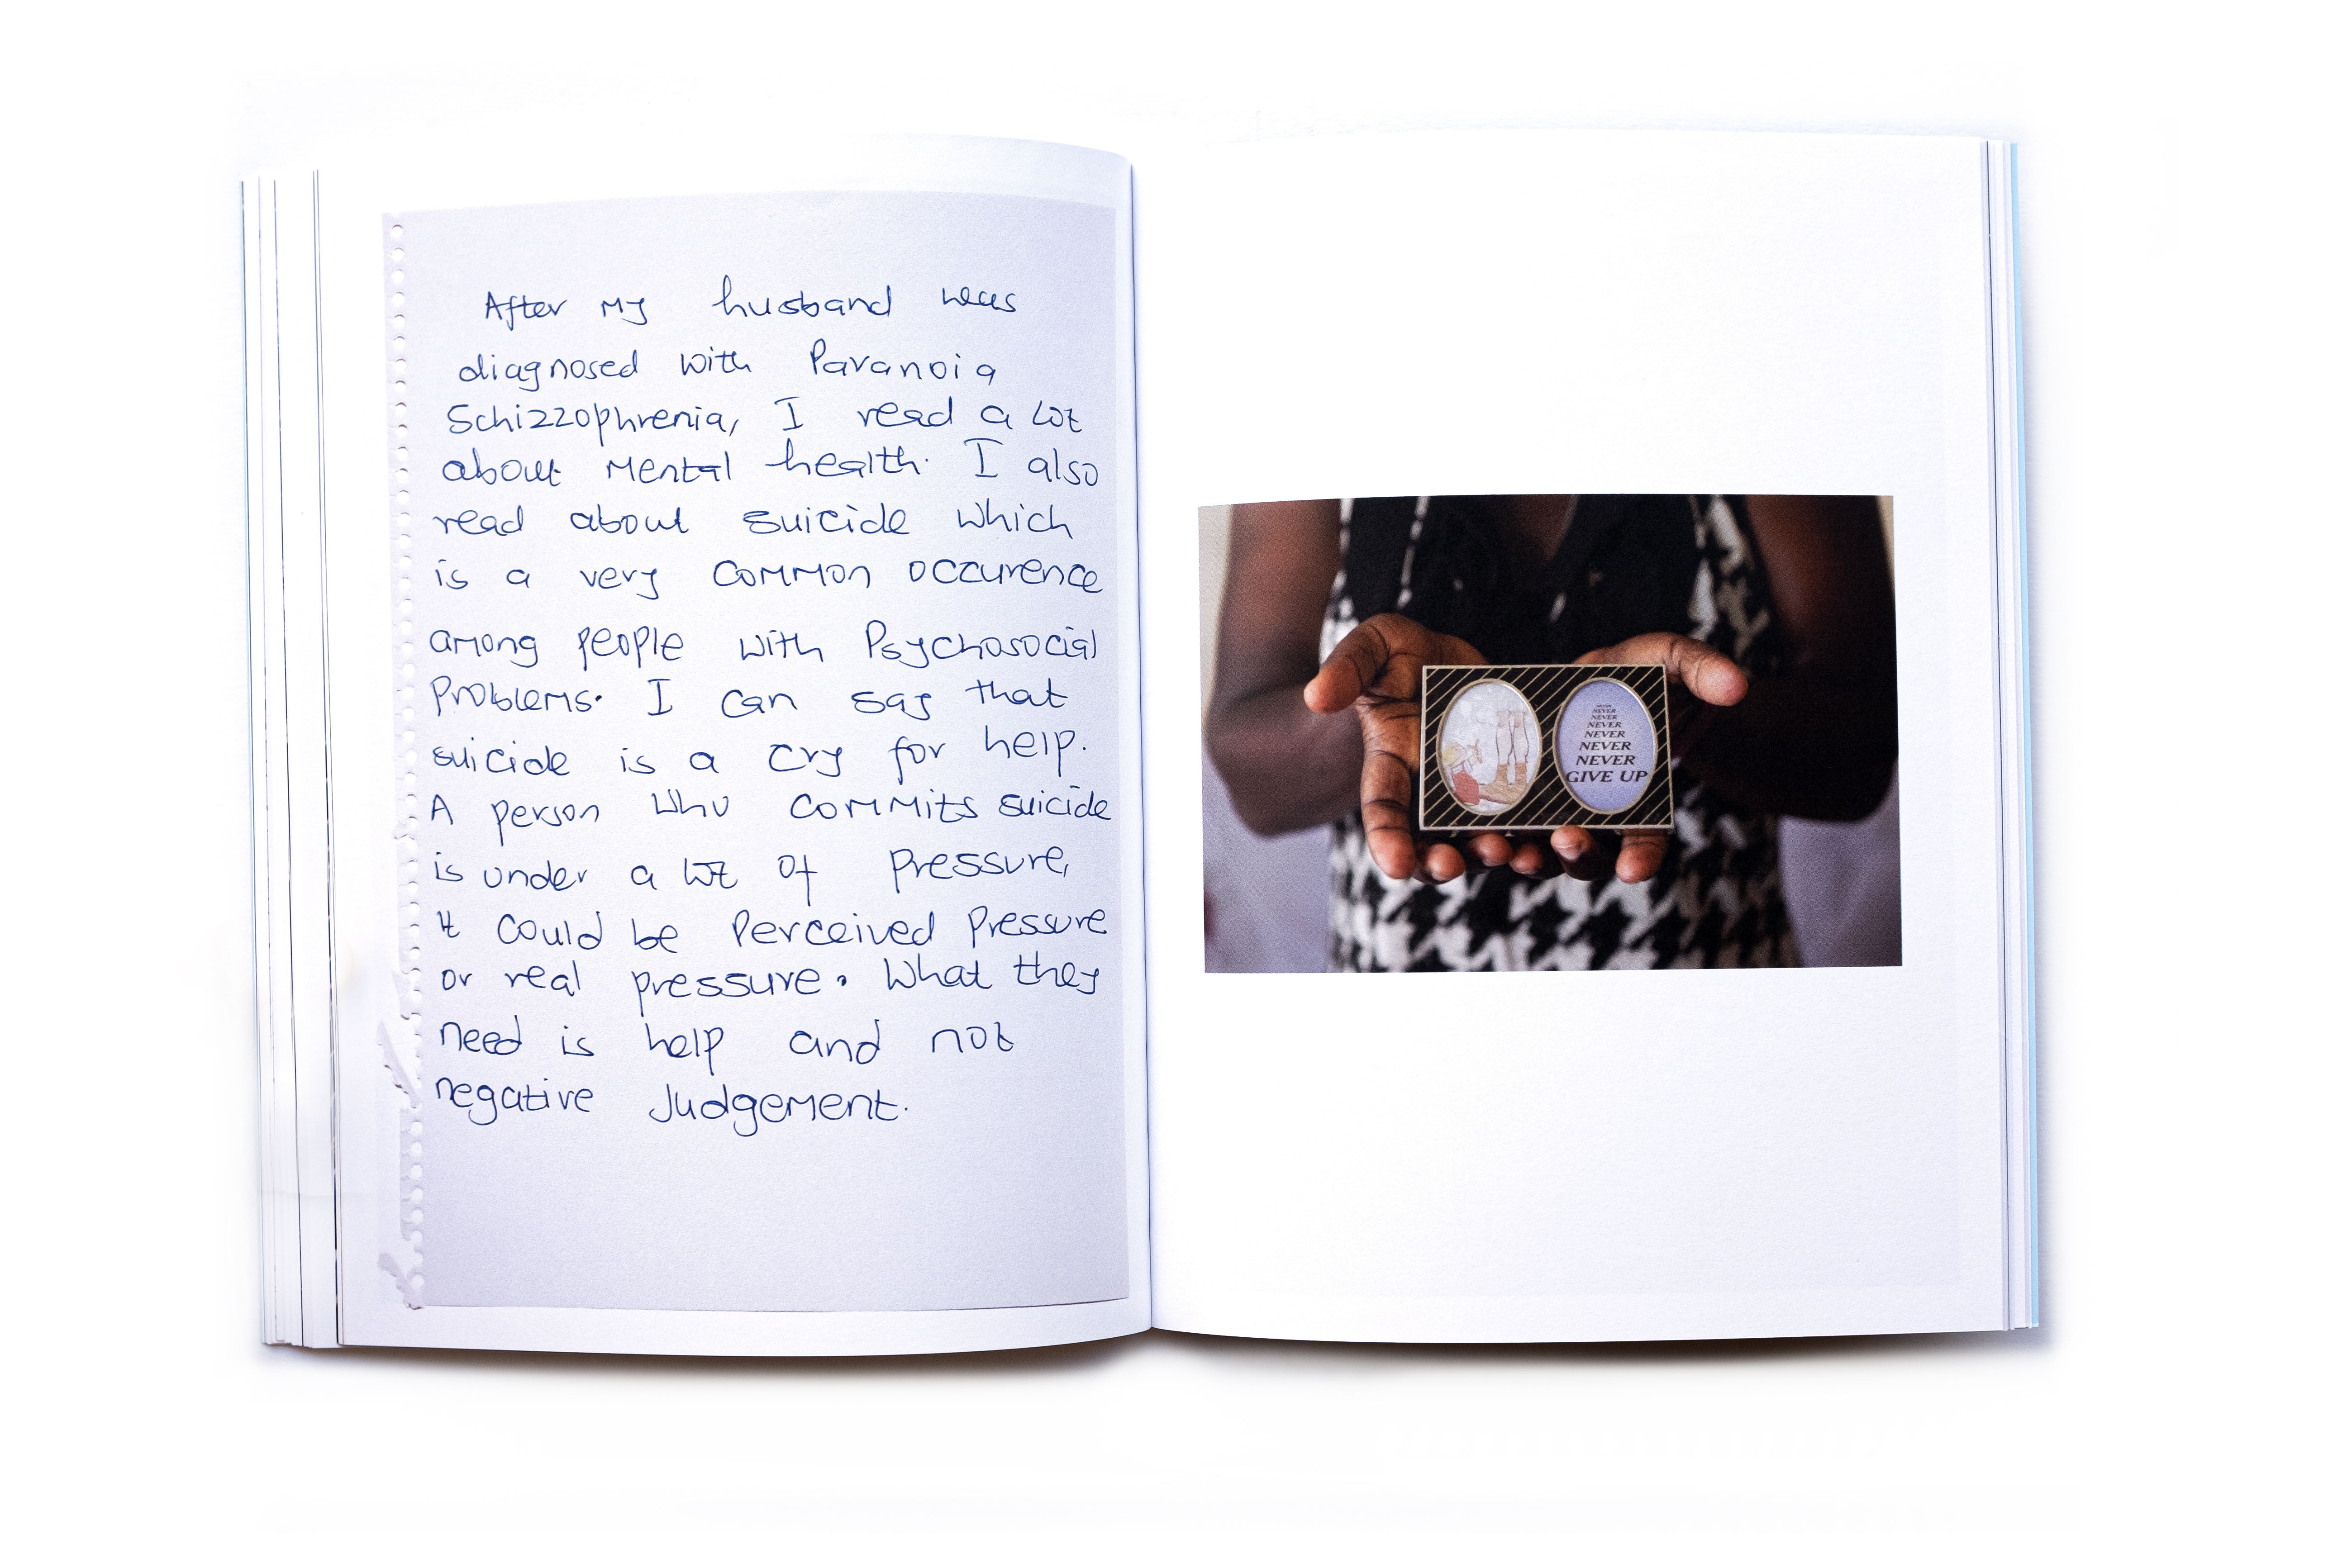 After my husband was
diagnosed with Paranoia
Schizzophrenia, I read a lot
about Mental health. I also
read about suicide which
is a very common occurence
among people with Psychosocial
Problems. I can say that
suicide is a cry for help.
A person who commits suicide
is under a lot of pressure,
It could be Perceived Pressure
or real pressure. What they
need is help and not
negative Judgement.
NEVER
NEVER
NEVER
NEVER
NEVER
NEVER
NEVER
GIVE UP